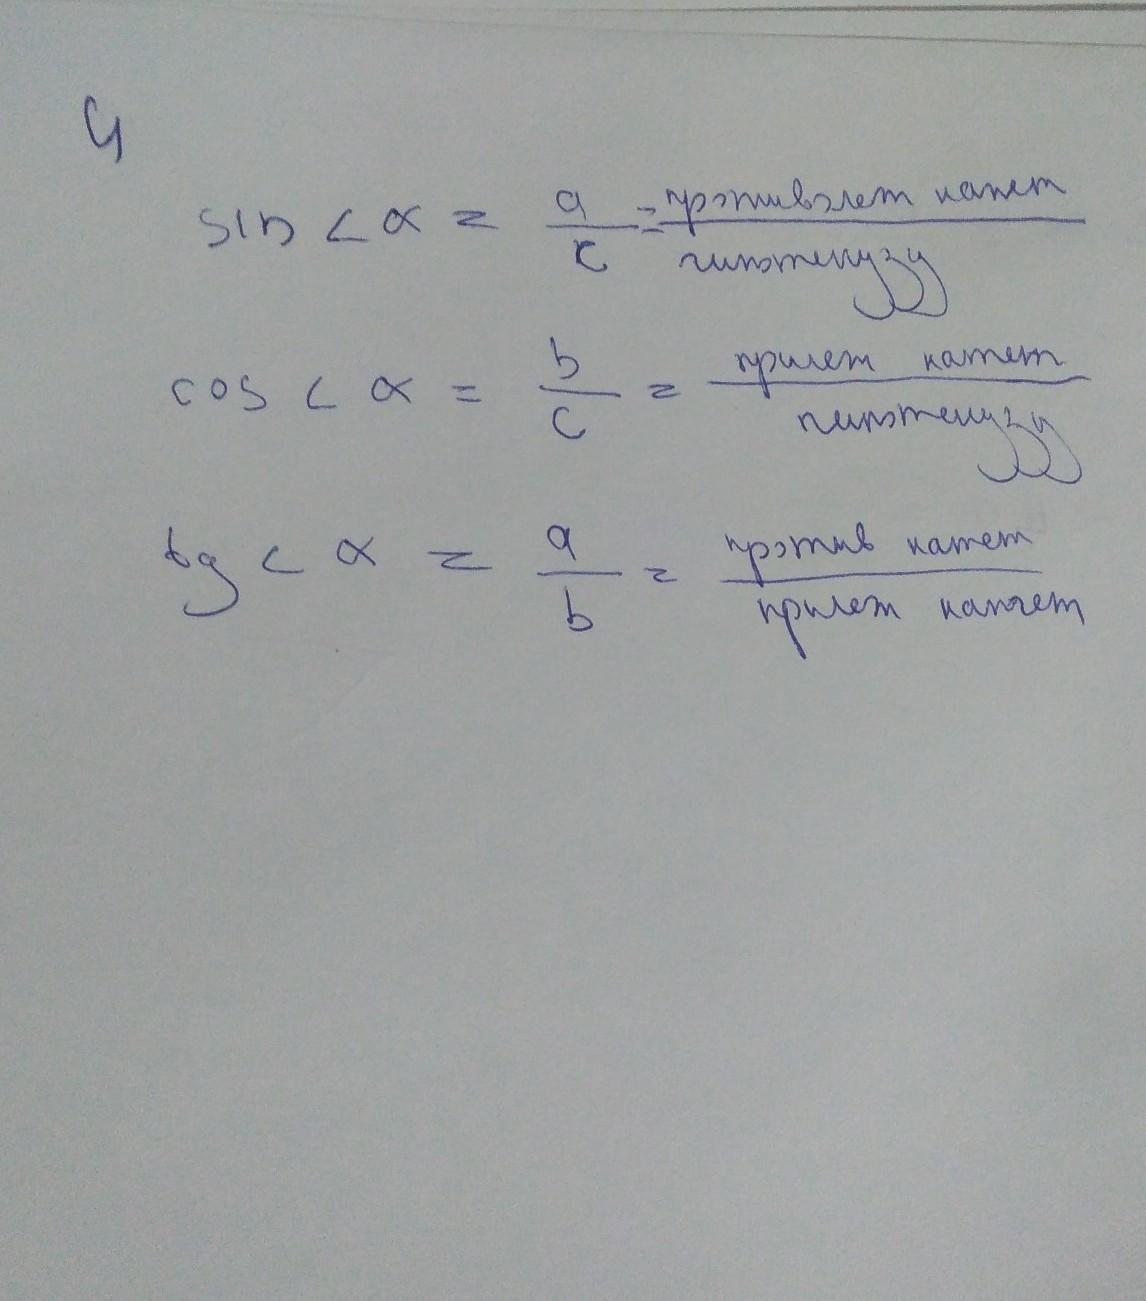 4
sin < α = a/c = противолеж катет / гипотенузу
cos < α = b/c = прилеж катет / гипотенузу
tg < α = a/b = против катет / прилеж катет